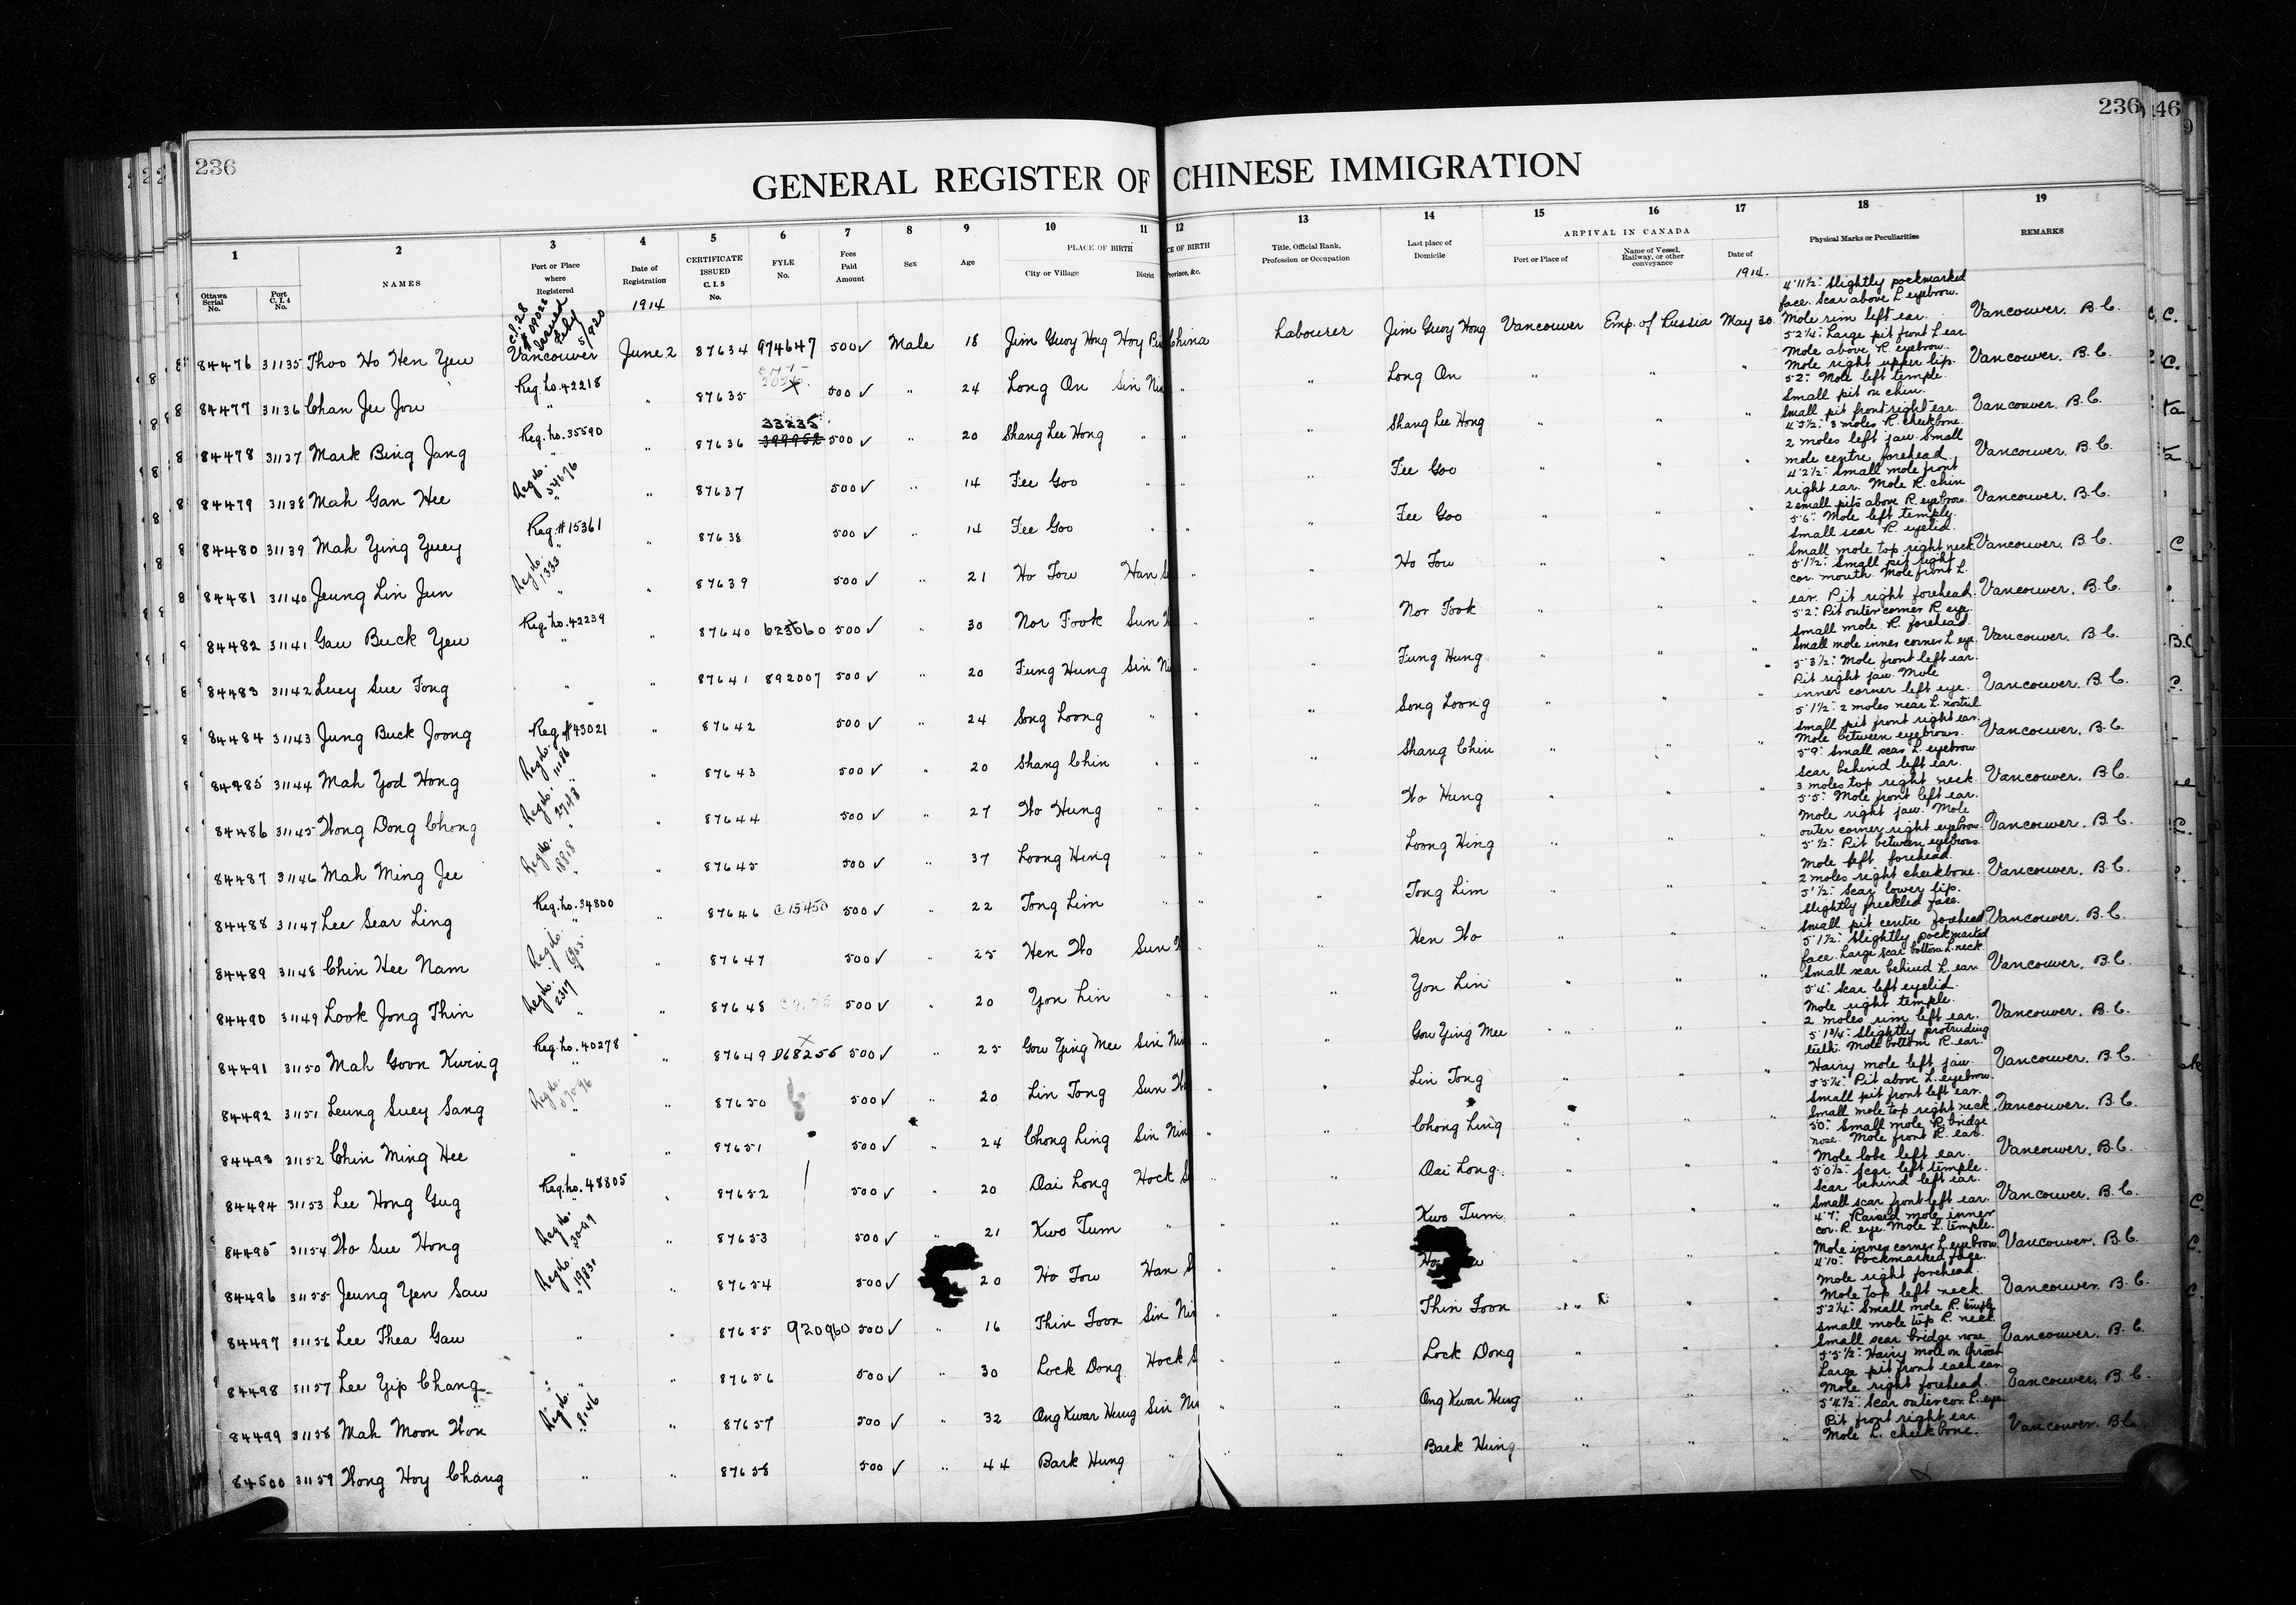 236
236
46
GENERAL REGISTER OF CHINESE IMMIGRATION
1 2 3 4 5 6 7 8 9 10 11 12 13 14 15 16 17 18 19
Ottawa Serial No. Port C.I.4 No. NAMES Port or Place where Registered Date of Registration CERTIFICATE ISSUED C.I.5 No. FYLE No. Fees Paid Amount Sex Age PLACE OF BIRTH City or Village District PLACE OF BIRTH Province, &c. Title, Official Rank, Profession or Occupation Last place of Domicile ARRIVAL IN CANADA Port or Place of Name of Vessel, Railway, or other conveyance Date of Physical Marks or Peculiarities REMARKS
1914 1914.
C.I.28 # 09022 Issued July 5/920
84476 31135 Thoo Ho Hen Yew Vancouver June 2 87634 974647 500 ✓ Male 18 Jim Guoy Hong Hoy Pi China Labourer Jim Guoy Hong Vancouver Emp. of Russia May 30 4'11½": Slightly pockmarked face. Scar above L. eyebrow. Mole rim left ear. Vancouver, B.C.
84477 31136 Chan Jee Jow Reg. No. 42218 " " 87635 500 ✓ " 24 Long On Sin Nin " " Long On " " " 5'2¼": Large pit front L. ear. Mole above R. eyebrow. Mole right upper lip. Vancouver, B.C.
84478 31137 Mark Bing Jang Reg. No. 35590 " " 87636 33235 399952 500 ✓ " 20 Shang Lee Hong " " " Shang Lee Hong " " " 5'2": Mole left temple. Small pit on chin. Small pit front right ear. Vancouver, B.C.
84479 31138 Mah Gan Hee Reg. No. 54676 " " 87637 500 ✓ " 14 Fee Goo " " " Fee Goo " " " 4'5½": 3 moles R. cheekbone. 2 moles left jaw. Small mole centre forehead. Vancouver, B.C.
84480 31139 Mah Ying Yuey Reg. # 15361 " " 87638 500 ✓ " 14 Fee Goo " " " Fee Goo " " " 4'2½": Small mole front right ear. Mole R. chin 2 small pits above R. eyebrow. Vancouver, B.C.
84481 31140 Jeung Lin Jun Reg. No. 1333 " " 87639 500 ✓ " 21 Ho Tow Han S " " Ho Tow " " " 5'6": Mole left temple. Small scar R. eyelid. Small mole top right neck. Vancouver, B.C.
84482 31141 Gau Buck Yew Reg. No. 42239 " " 87640 623660 500 ✓ " 30 Nor Fook Sun W " " Nor Fook " " " 5'1½": Small pit right cor. mouth. Mole front L. ear. Pit right forehead. Vancouver, B.C.
84483 31142 Luey Sue Tong " " 87641 892007 500 ✓ " 20 Fung Hung Sin Ni " " Fung Hung " " " 5'2": Pit outer corner R. eye. Small mole R. forehead. Small mole inner corner L. eye. Vancouver, B.C.
84484 31143 Jung Buck Joong Reg. # 43021 " 87642 500 ✓ " 24 Song Loong " " " Song Loong " " " 5'3½": Mole front left ear. Pit right jaw. Mole inner corner left eye. Vancouver, B.C.
84485 31144 Mah Yod Hong Reg. No. 1186 " " 87643 500 ✓ " 20 Shang Chin " " " Shang Chin " " " 5'1½": 2 moles near L. nostril. Small pit front right ear. Mole between eyebrows. Vancouver, B.C.
84486 31145 Wong Dong Chong Reg. No. " " 87644 500 ✓ " 27 Wo Hung " " " Wo Hung " " " 5'9": Small scar L. eyebrow. Scar behind left ear. 3 moles top right neck. Vancouver, B.C.
84487 31146 Mah Ming Jee Reg. No. 18818 " " 87645 500 ✓ " 37 Loong Hing " " " Loong Hing " " " 5'5": Mole front left ear. Mole right jaw. Mole outer corner right eyebrow. Vancouver, B.C.
84488 31147 Lee Sear Ling Reg. No. 34800 " " 87646 C15450 500 ✓ " 22 Tong Lim " " " Tong Lim " " " 5'½": Pit between eyebrows. Mole left forehead. 2 moles right cheekbone. Vancouver, B.C.
84489 31148 Chin Hee Nam Reg. No. " " 87647 500 ✓ " 25 Hen Wo Sun W " " Hen Wo " " " 5'½": Scar lower lip. Slightly freckled face. Small pit centre forehead. Vancouver, B.C.
84490 31149 Look Jong Thin Reg. No. 2317 " " 87648 500 ✓ " 20 Yon Lin " " " Yon Lin " " " 5'1½": Slightly pockmarked face. Large scar bottom L. neck. Small scar behind L. ear. Vancouver, B.C.
84491 31150 Mah Goon Kwing Reg. No. 40278 " " 87649 D68256 500 ✓ " 25 Gow Ying Mee Sin Nin " " Gow Ying Mee " " " 5'4": Scar left eyelid. Mole right temple. 2 moles rim left ear. Vancouver, B.C.
84492 31151 Leung Suey Sang Reg. No. 57096 " " 87650 500 ✓ " 20 Lin Tong Sun W " " Lin Tong " " " 5'1¾": Slightly protruding teeth. Mole bottom R. ear. Hairy mole left jaw. Vancouver, B.C.
84493 31152 Chin Ming Hee " " 87651 500 ✓ " 24 Chong Ling Sin Nin " " Chong Ling " " " 5'5¼": Pit above L. eyebrow. Small pit front left ear. Small mole top right neck. Vancouver, B.C.
84494 31153 Lee Hong Gug Reg. No. 48805 " " 87652 500 ✓ " 20 Dai Long Hock S " " Dai Long " " " 5'0": Small mole R. bridge nose. Mole front R. ear. Mole lobe left ear. Vancouver, B.C.
84495 31154 Wo Sue Hong Reg. No. " " 87653 500 ✓ " 21 Kwo Tum " " " Kwo Tum " " " 5'0½": Scar left temple. Scar behind left ear. Small scar front left ear. Vancouver, B.C.
84496 31155 Jeung Yen Saw Reg. No. " " 87654 500 ✓ 20 Ho Tow Han S " " Ho " " " 4'7": Raised mole inner cor. R. eye. Mole L. temple. Mole inner corner L. eyebrow. Vancouver, B.C.
84497 31156 Lee Thea Gaw " " 87655 920960 500 ✓ " 16 Thin Toon Sin Nin " " Thin Toon " " " 4'10": Pockmarked face. Mole right forehead. Mole top left neck. Vancouver, B.C.
84498 31157 Lee Yip Chang " " 87656 500 ✓ " 30 Lock Dong Hock S " " Lock Dong " " " 5'2¼": Small mole R. temple. Small mole top R. neck. Small scar bridge nose. Vancouver, B.C.
84499 31158 Mah Moon Won Reg. No. 8146 " " 87657 500 ✓ " 32 Ong Kwar Hung Sin Nin " " Ong Kwar Hung " " " 5'5½": Hairy mole on throat. Large pit front each ear. Mole right forehead. Vancouver, B.C.
84500 31159 Wong Hoy Chang " " 87658 500 ✓ " 44 Bark Hung " " " Bark Hung " " " 5'4½": Scar outer cor. L. eye. Pit front right ear. Mole L. cheekbone. Vancouver, B.C.